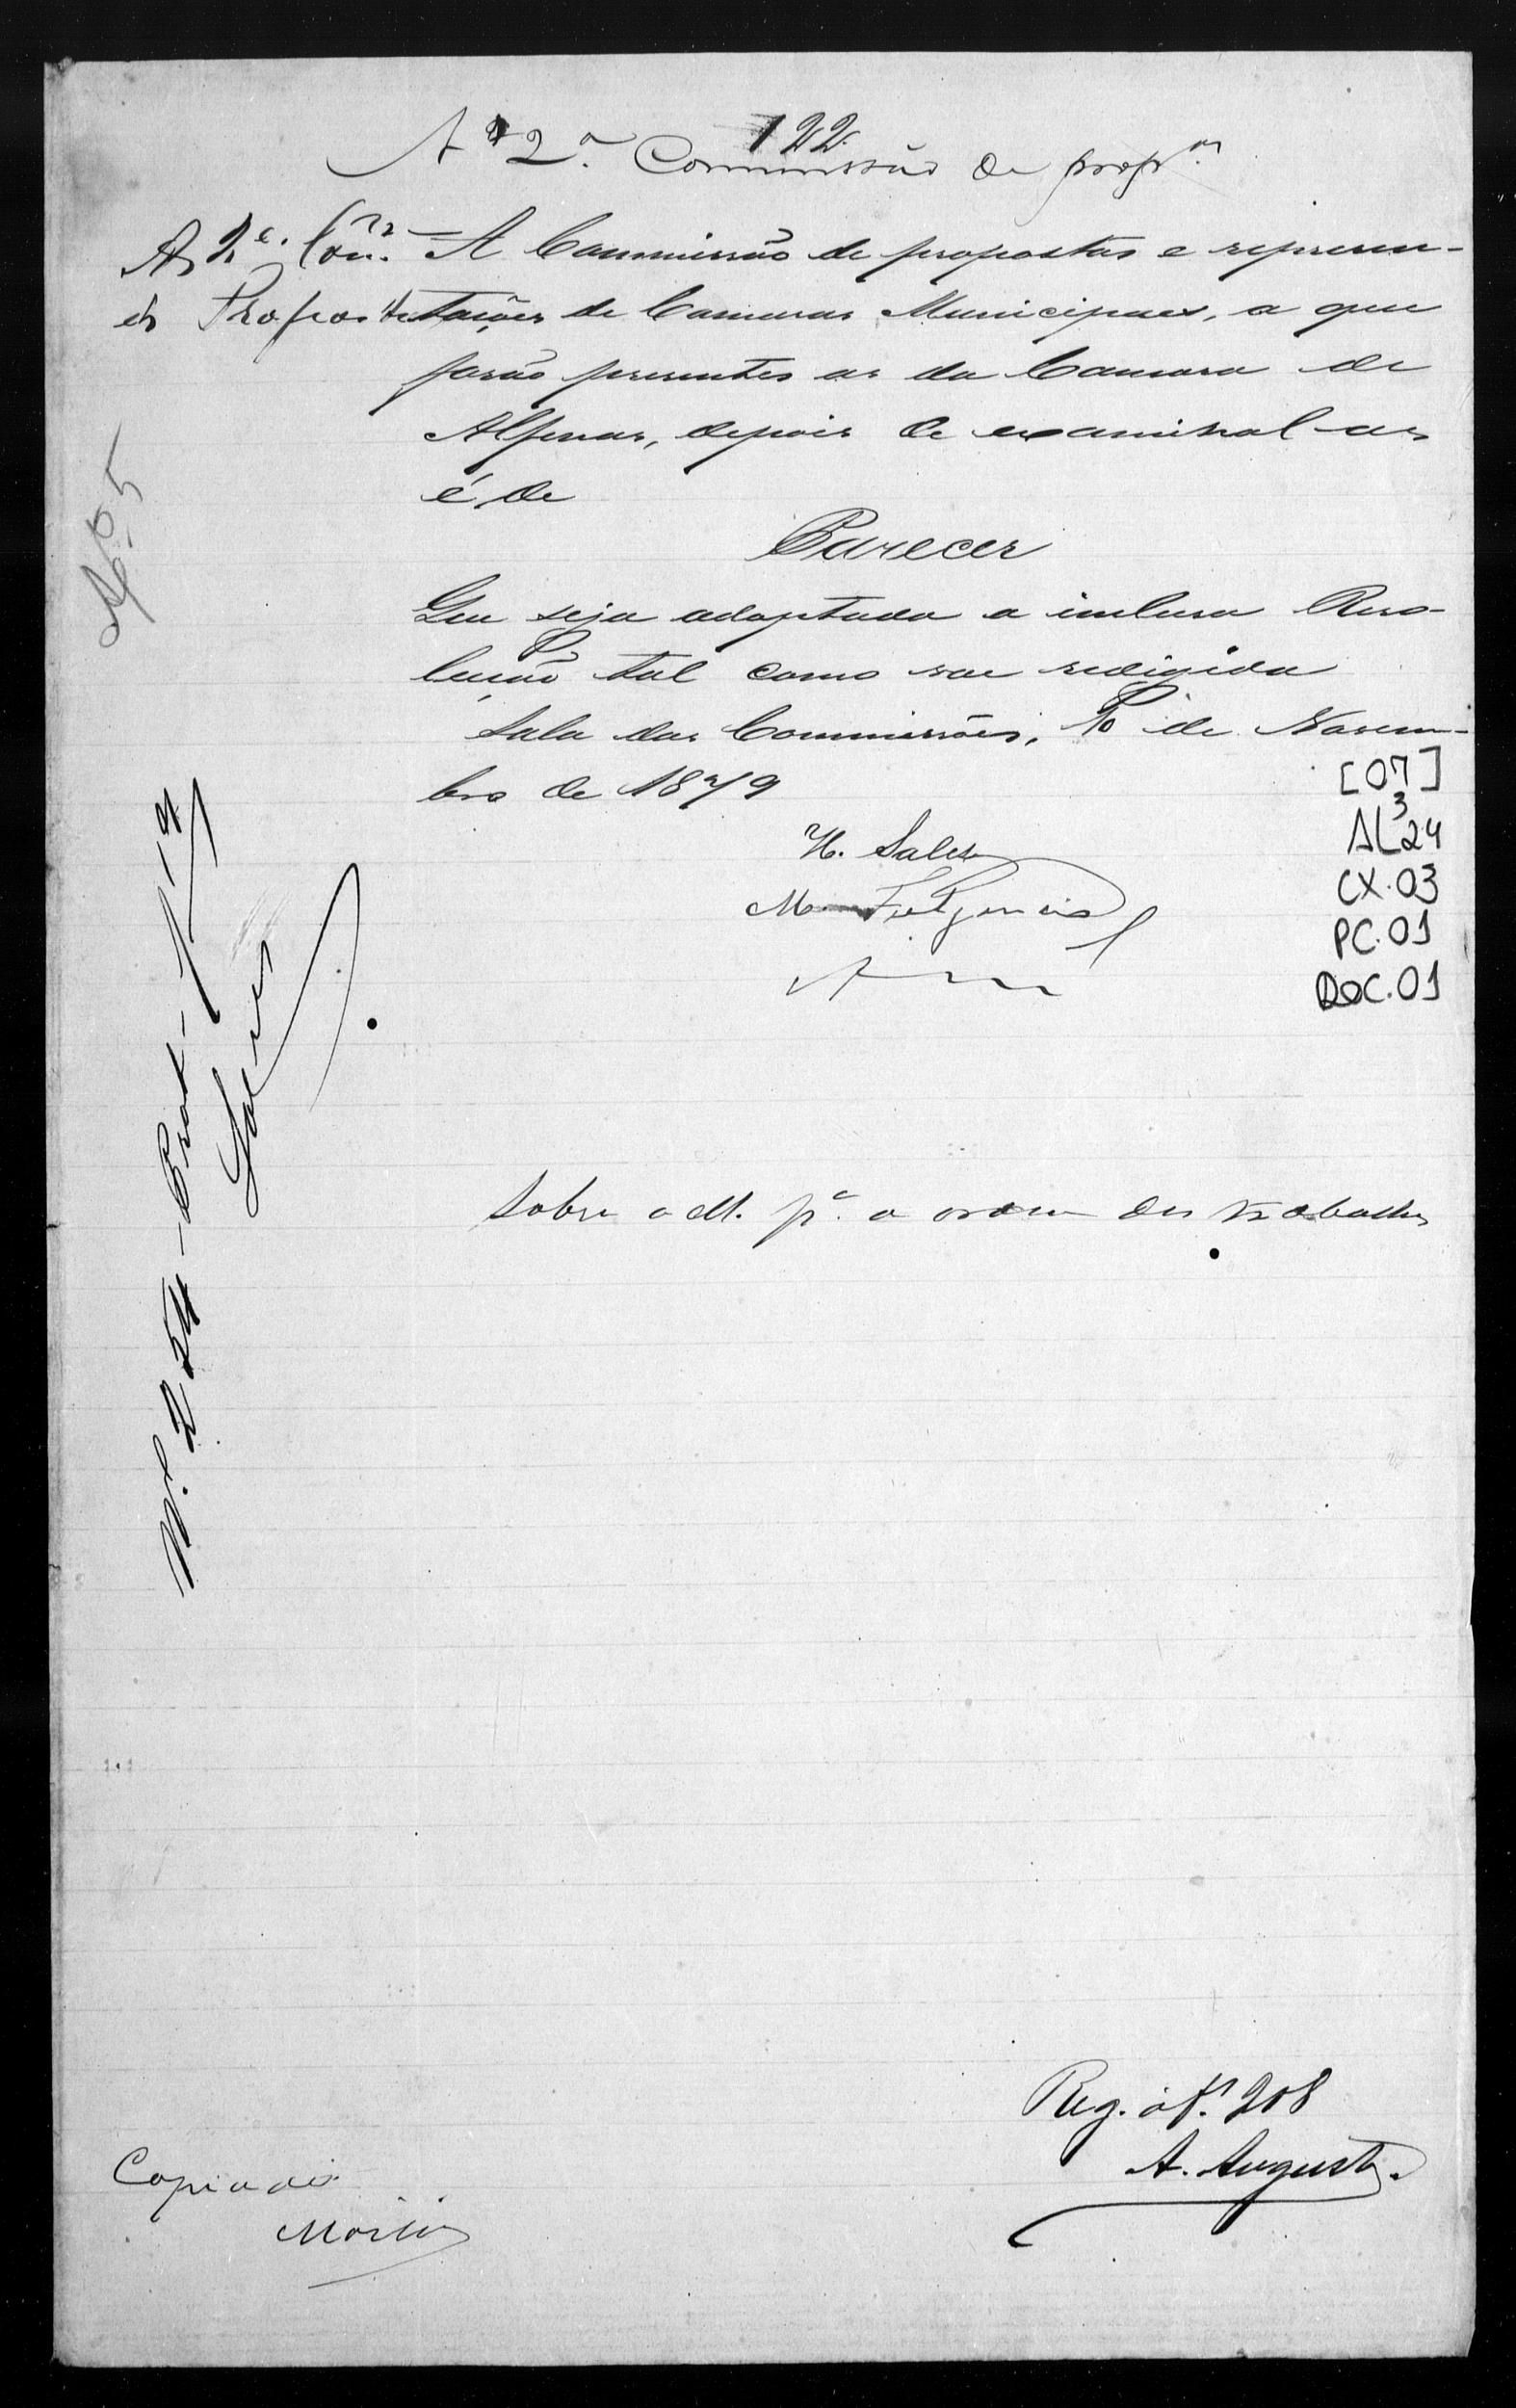 122
A 2ª Commissão de prop.as
A 2ª Com.
de Propostas
A Commissão de propostas e represen-
tações de Camaras Municipaes, a que
forão presentes as da Camara de
Alfenas, depois de examinal-as
é de
Parecer
Que seja adoptada a inclusa Reso-
lução tal como vae redigida
Sala das Commissões, 10 de Novem-
bro de 1879
H. Salles
M. Fulgencio
[07]
AL3 24
CX.03
PC.01
DOC.01
Nº 254 - Prot -
Sobre a M. pª a ordem dos trabalhos
Reg. á f. 208
A. Augusto
Copiado